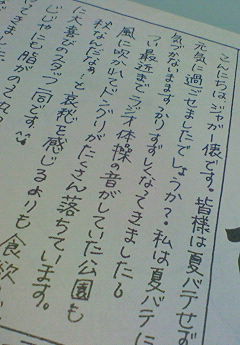 こんにちは。ジャガー俵です。皆様は夏バテせず
元気に過ごせましたでしょうか？私は夏バテに
気づかないまますっかりすずしくなってきました。
つい最近までラジオ体操の音がしていた公園も
風に吹かれてドングリがたくさん落ちています。
秋なんだなぁ～と哀愁を感じるよりも食欲
に大喜びのスタッフ一同です。
じじゃにも脂がのる